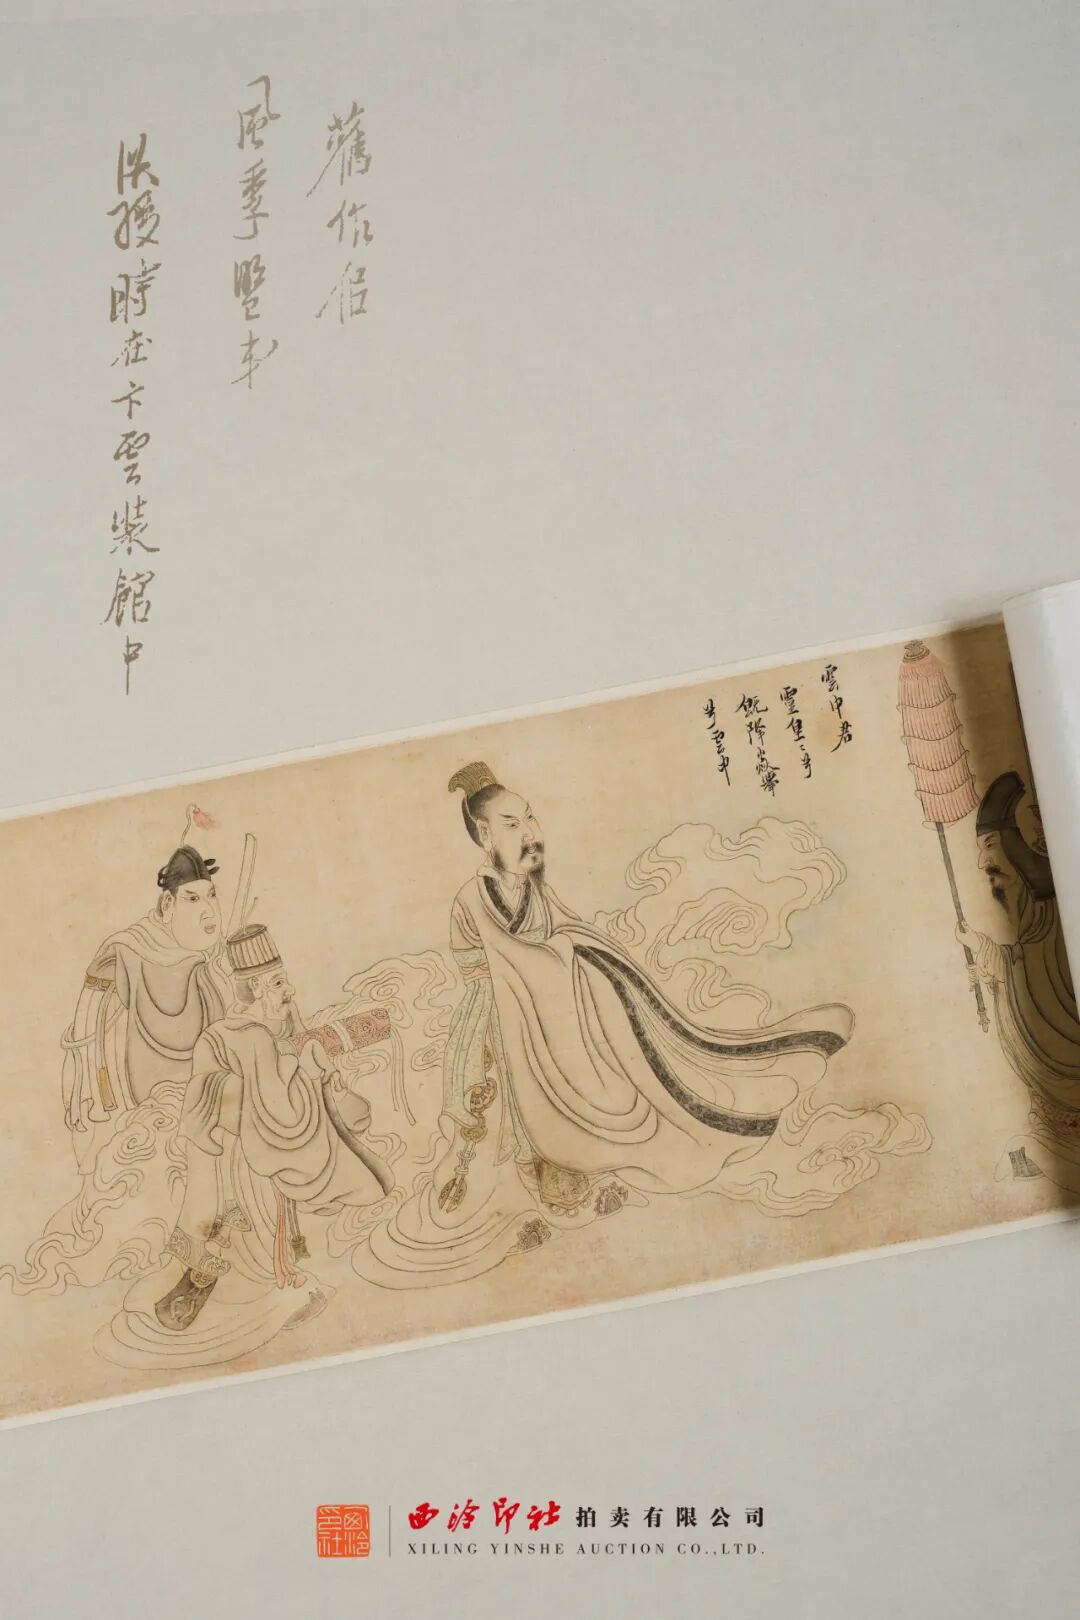 舊作佀
風季盟弟
洪綬時在卞雲裝館中
雲中君
靈皇〻兮
既降猋舉
兮雲中
西泠印社
西泠印社拍卖有限公司
XILING YINSHE AUCTION CO.,LTD.